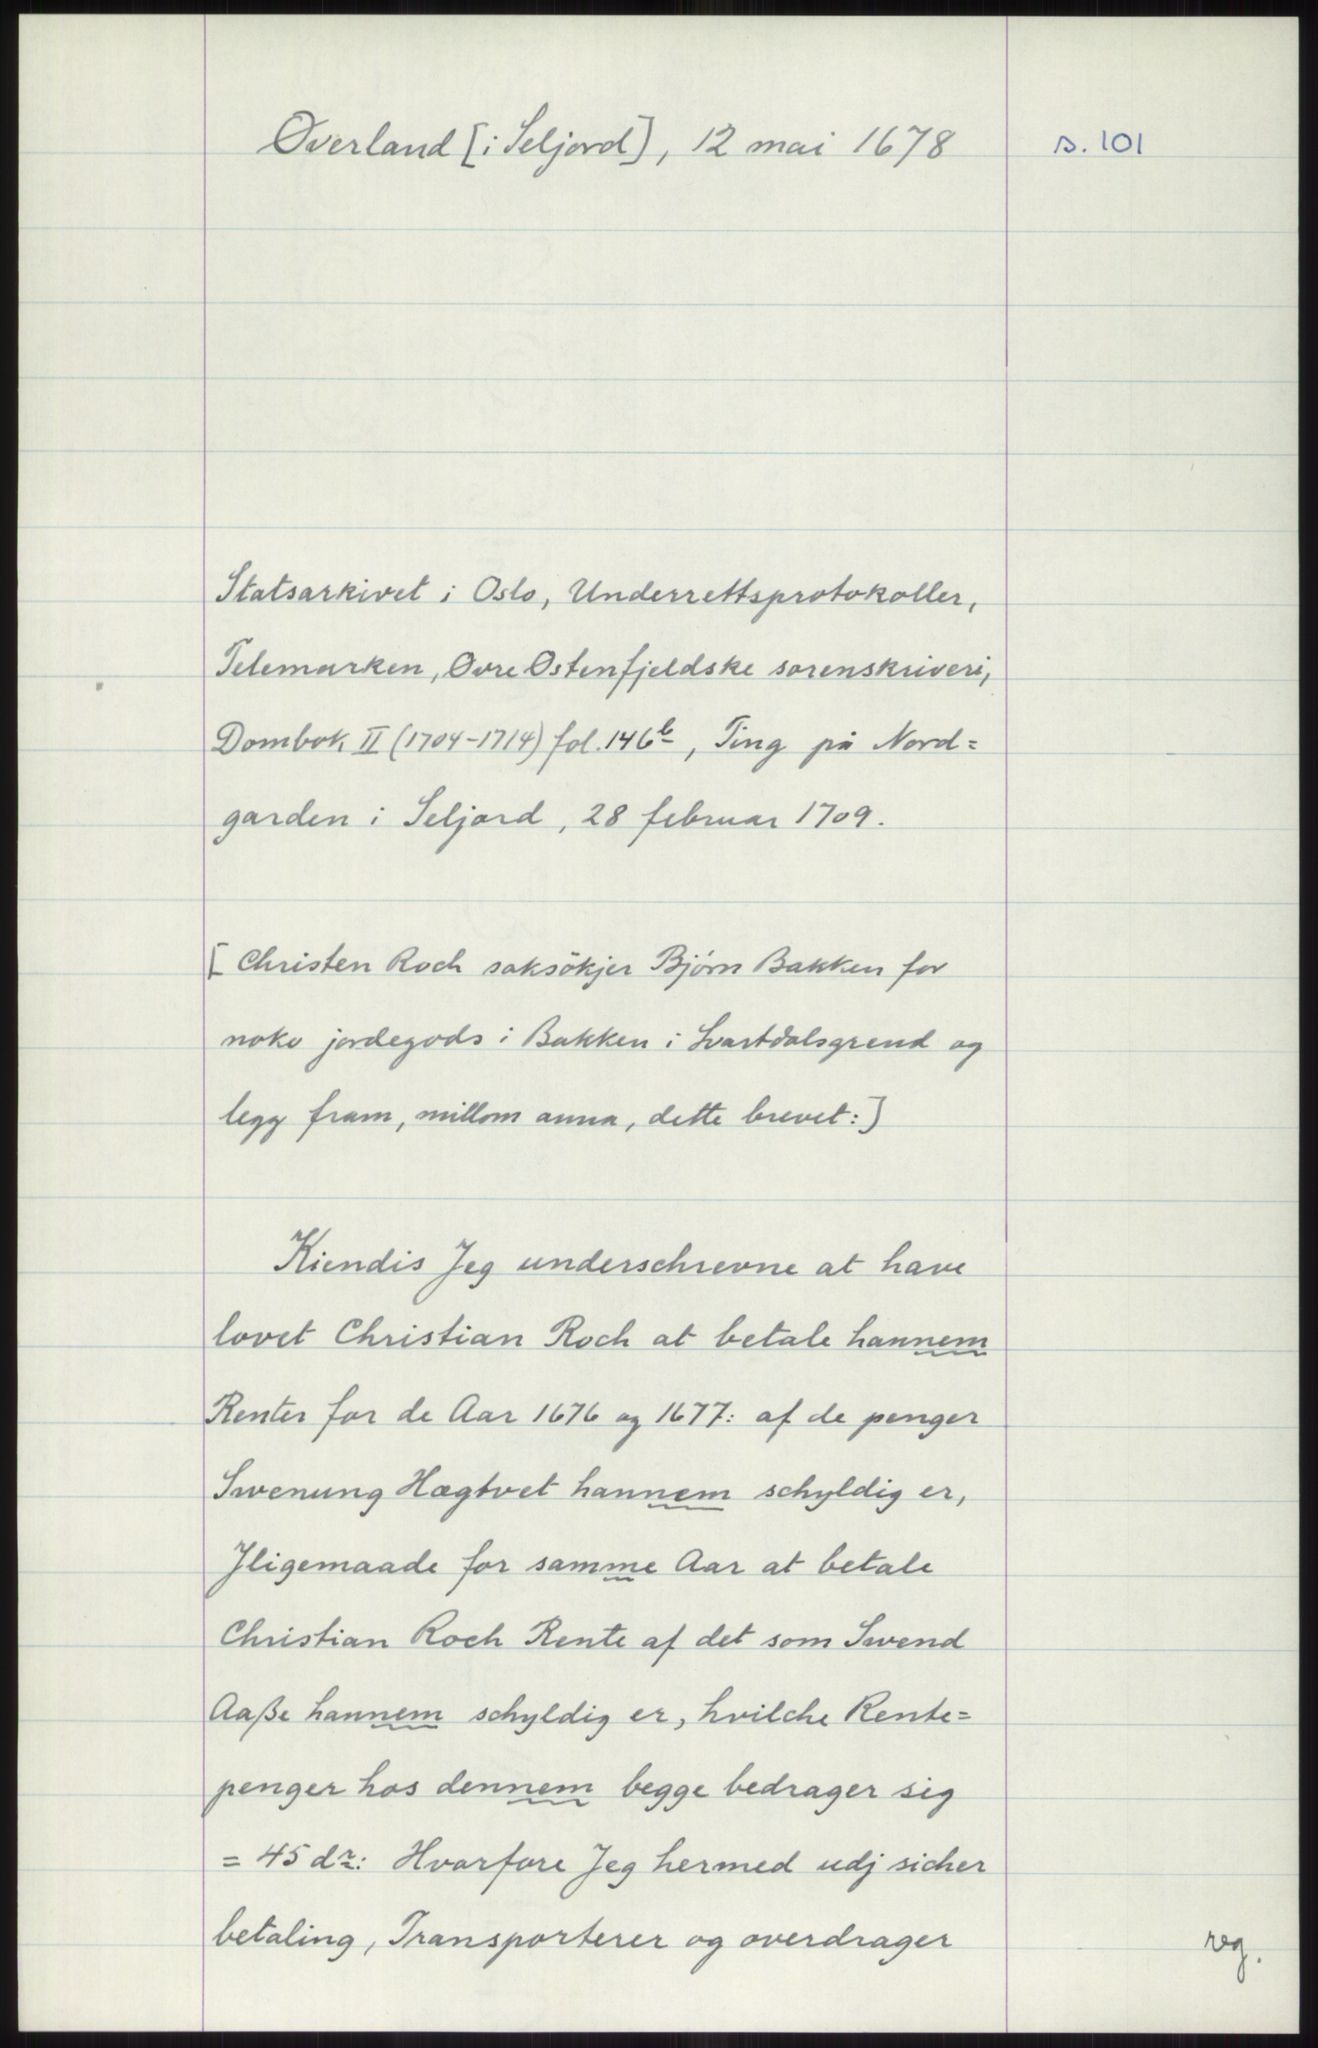 Øverland [i Seljord], 12 mai 1678
s. 101
Statsarkivet i Oslo, Underrettsprotokoller,
Telemarken, Øvre Østenfjeldske sorenskriveri,
Dombok II (1704-1714) fol. 146b, Ting på Nord=
garden i Seljord, 28 februar 1709.
[Christen Roch saksökjer Bjørn Bakken for
noko jordegods i Bakken i Svartdalsgrend og
legg fram, millom anna, dette brevet:]
Kiendis Jeg underschrevne at have
lovet Christian Roch at betale hannem
Renter for de Aar 1676 og 1677: af de penger
Swenung Hægtvet hannem schyldig er,
Jligemaade for samme Aar at betale
Christian Roch Rente af det som Swend
Aaße hannem schyldig er, hvilche Rente=
penger hos dennem begge bedrager sig
= 45 dr: Hvorfore Jeg hermed udj sicher
betaling, Transporterer og overdrager
reg.